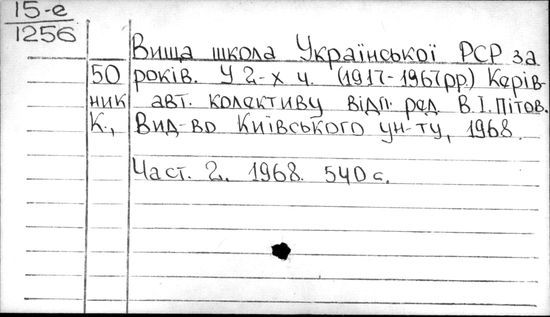 15-е
1256
Вища школа Української РСР за
50 років. У 2-х ч. (1917-1967рр) Керів-
ник авт. колективу відп. ред В.І.Пітов.
К., Вид-во Київського ун-ту, 1968.
Част. 2. 1968. 540с.